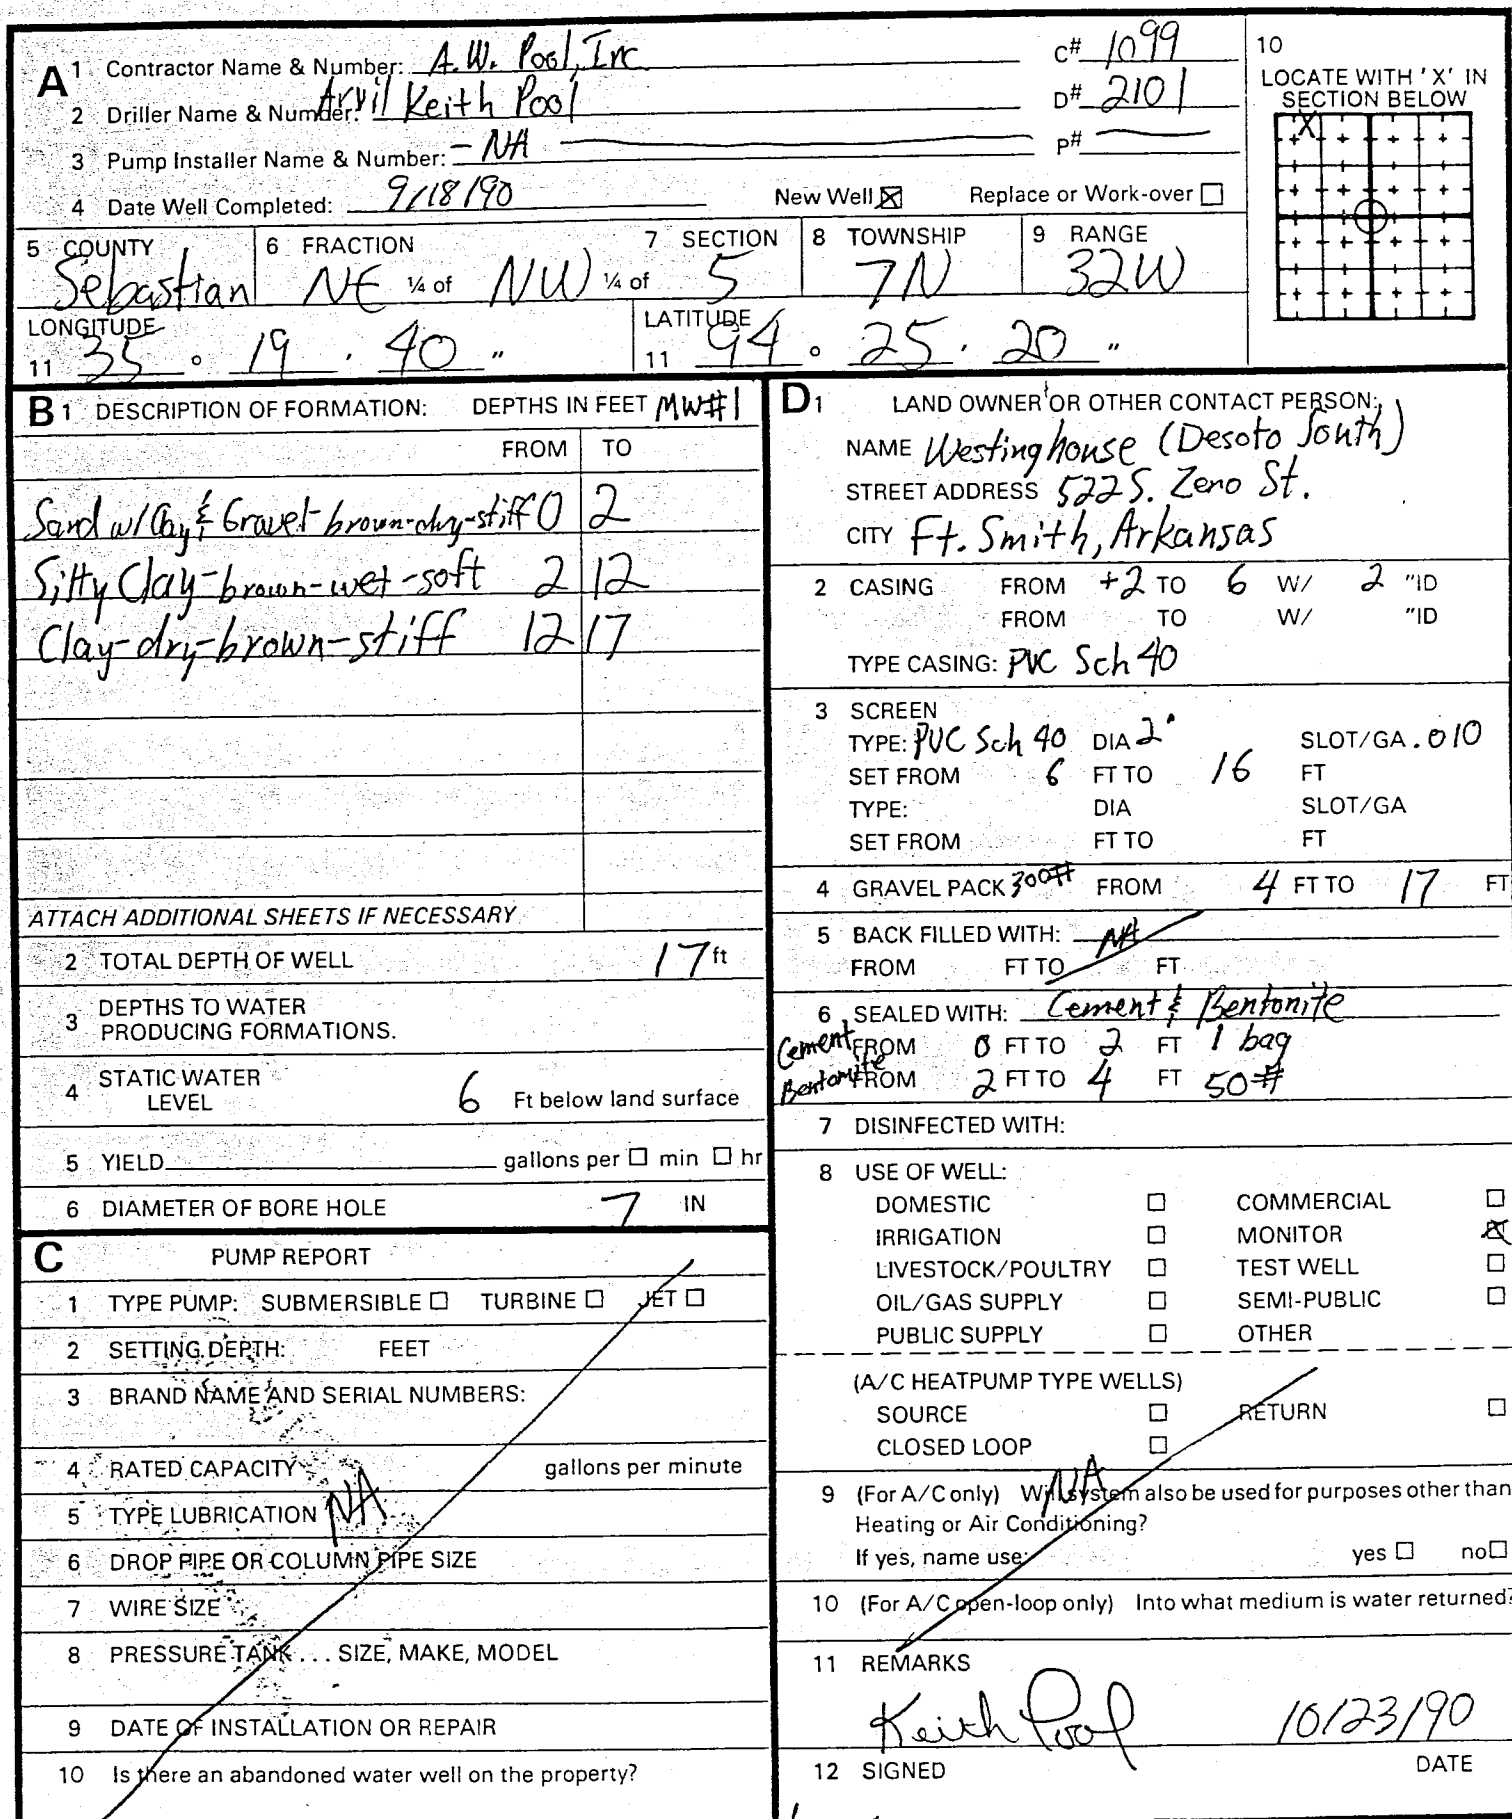 A 1 Contractor Name & Number: A.W. Pool, Inc C# 1099
2 Driller Name & Number: Arvil Keith Pool D# 2101
3 Pump Installer Name & Number: - NA P#
4 Date Well Completed: 9/18/90 New Well ☒ Replace or Work-over ☐
10
LOCATE WITH 'X' IN
SECTION BELOW
X
5 COUNTY 6 FRACTION 7 SECTION 8 TOWNSHIP 9 RANGE
Sebastian NE ¼ of NW ¼ of 5 7N 32W
LONGITUDE LATITUDE
11 35 ° 19 ' 40 " 11 94 ° 25 ' 20 "
B 1 DESCRIPTION OF FORMATION: DEPTHS IN FEET MW#1
FROM TO
Sand w/Clay & Gravel-brown-dry-stiff 0 2
Silty Clay-brown-wet-soft 2 12
Clay-dry-brown-stiff 12 17
ATTACH ADDITIONAL SHEETS IF NECESSARY
2 TOTAL DEPTH OF WELL 17 ft
3 DEPTHS TO WATER
PRODUCING FORMATIONS.
4 STATIC WATER
LEVEL 6 Ft below land surface
5 YIELD gallons per ☐ min ☐ hr
6 DIAMETER OF BORE HOLE 7 IN
C PUMP REPORT
1 TYPE PUMP: SUBMERSIBLE ☐ TURBINE ☐ JET ☐
2 SETTING DEPTH: FEET
3 BRAND NAME AND SERIAL NUMBERS:
4 RATED CAPACITY gallons per minute
5 TYPE LUBRICATION NA
6 DROP PIPE OR COLUMN PIPE SIZE
7 WIRE SIZE
8 PRESSURE TANK . . . SIZE, MAKE, MODEL
9 DATE OF INSTALLATION OR REPAIR
10 Is there an abandoned water well on the property?
D 1 LAND OWNER OR OTHER CONTACT PERSON:
NAME Westinghouse (Desoto South)
STREET ADDRESS 522 S. Zeno St.
CITY Ft. Smith, Arkansas
2 CASING FROM +2 TO 6 W/ 2 "ID
FROM TO W/ "ID
TYPE CASING: PVC Sch 40
3 SCREEN
TYPE: PVC Sch 40 DIA 2" SLOT/GA .010
SET FROM 6 FT TO 16 FT
TYPE: DIA SLOT/GA
SET FROM FT TO FT
4 GRAVEL PACK 300# FROM 4 FT TO 17 FT
5 BACK FILLED WITH: NA
FROM FT TO FT
6 SEALED WITH: Cement & Bentonite
Cement FROM 0 FT TO 2 FT 1 bag
Bentonite FROM 2 FT TO 4 FT 50#
7 DISINFECTED WITH:
8 USE OF WELL:
DOMESTIC ☐ COMMERCIAL ☐
IRRIGATION ☐ MONITOR ☒
LIVESTOCK/POULTRY ☐ TEST WELL ☐
OIL/GAS SUPPLY ☐ SEMI-PUBLIC ☐
PUBLIC SUPPLY ☐ OTHER
(A/C HEATPUMP TYPE WELLS)
SOURCE ☐ RETURN ☐
CLOSED LOOP ☐
NA
9 (For A/C only) Will system also be used for purposes other than
Heating or Air Conditioning?
If yes, name use: yes ☐ no ☐
10 (For A/C open-loop only) Into what medium is water returned?
11 REMARKS
Keith Pool 10/23/90
12 SIGNED DATE